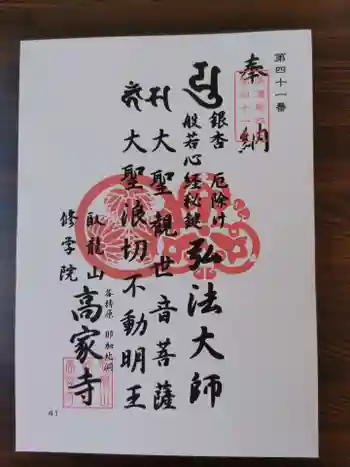 第四十一番
奉納
銀杏 厄除け
般若心経秘鍵
弘法大師
大聖観世音菩薩
大聖浪切不動明王
臥龍山
修学院
高家寺
41